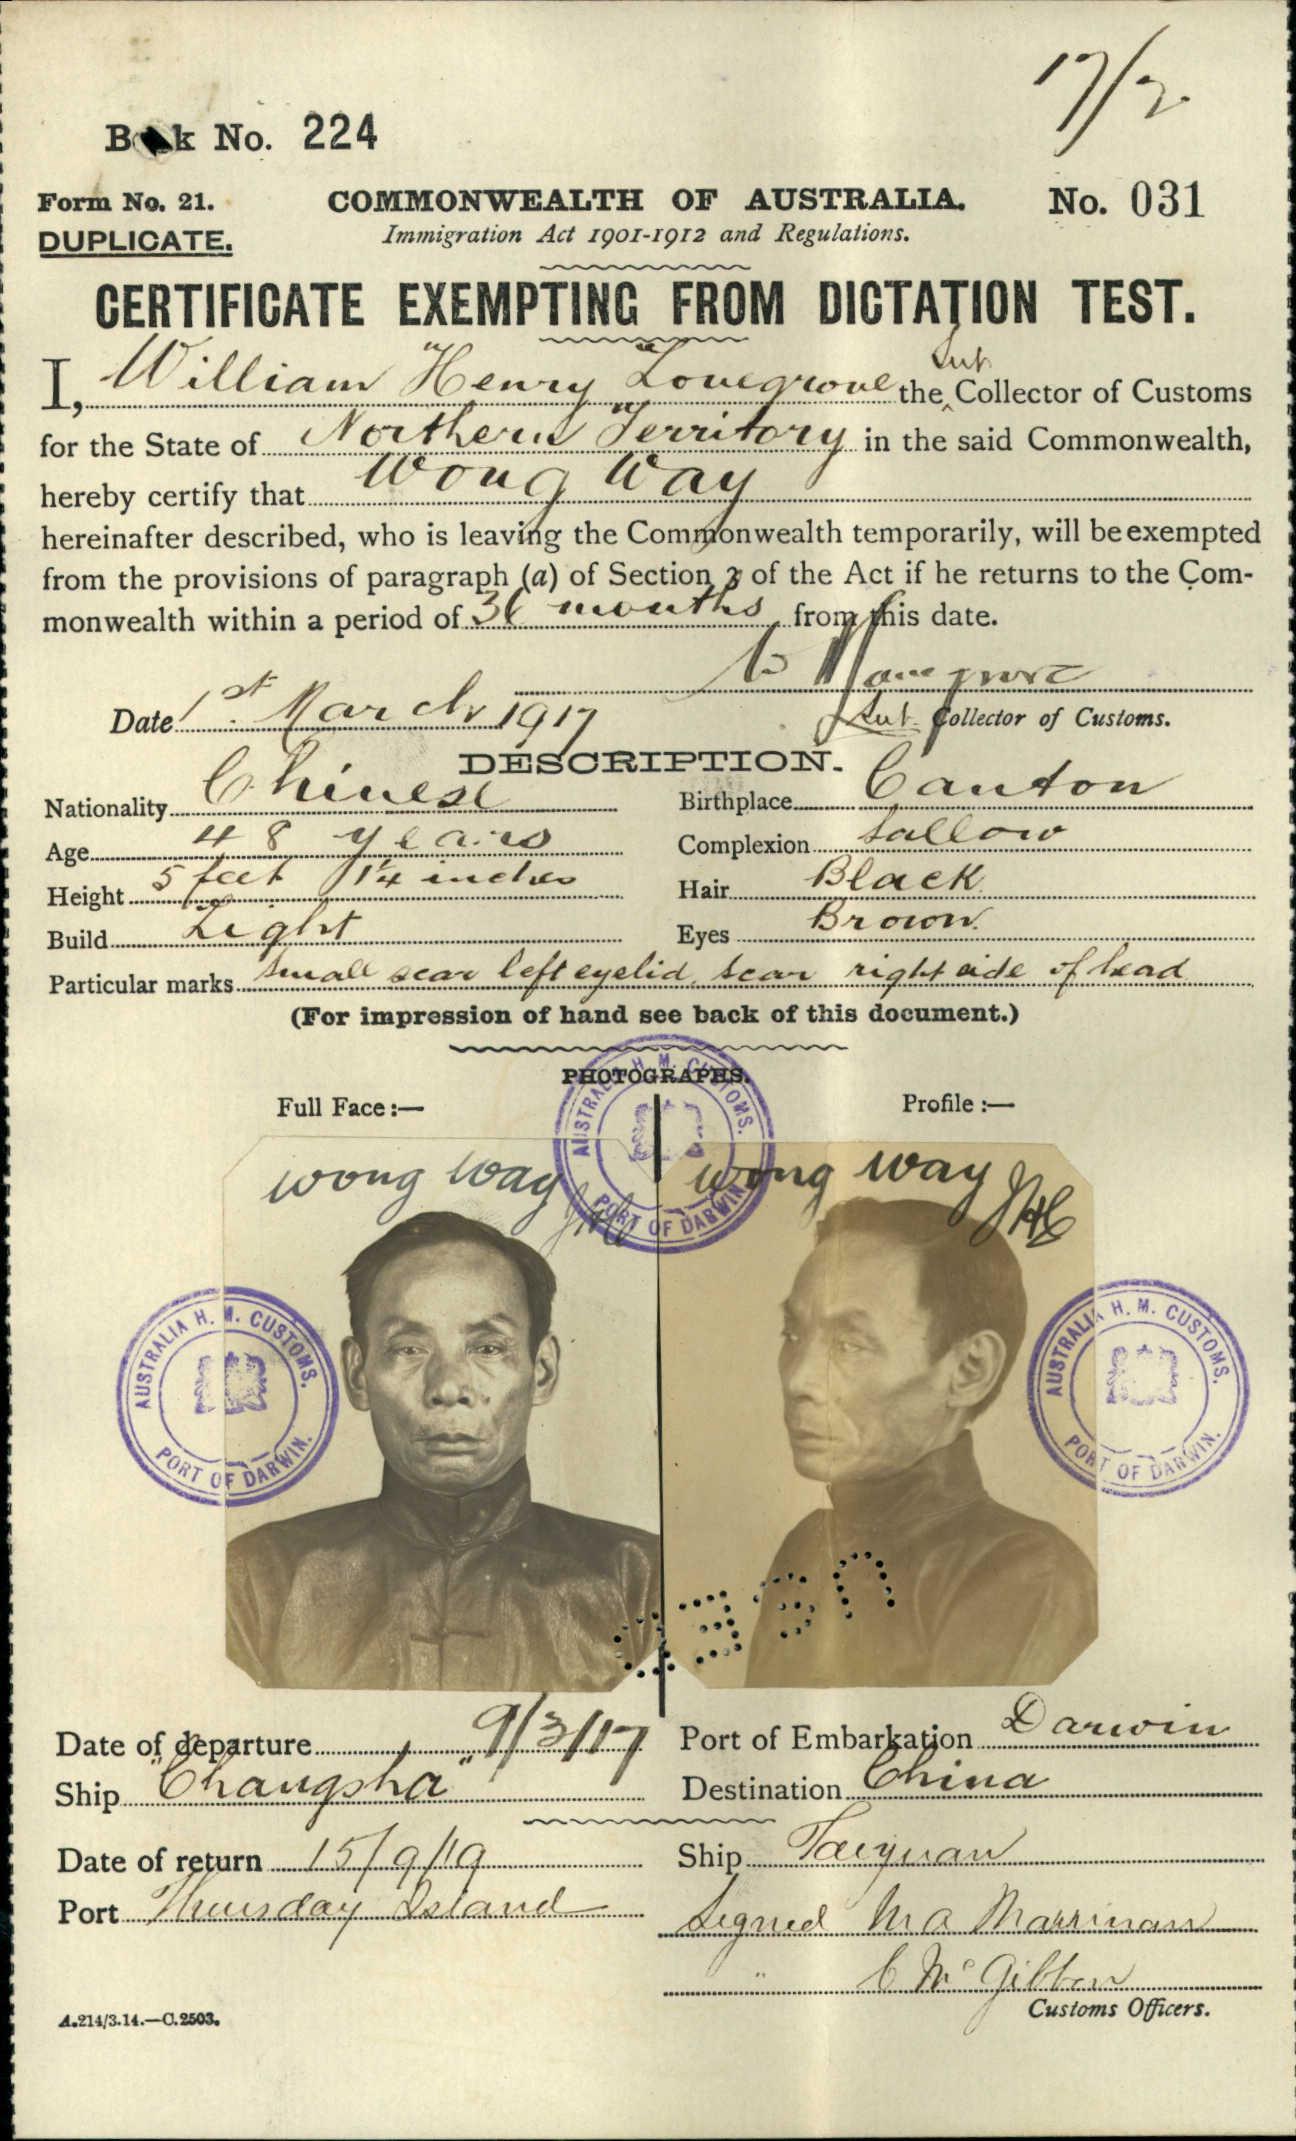 17/2
Book No. 224
Form No. 21. COMMONWEALTH OF AUSTRALIA. No. 031
DUPLICATE. Immigration Act 1901-1912 and Regulations.
CERTIFICATE EXEMPTING FROM DICTATION TEST.
I, William Henry Lovegrove the Sub Collector of Customs
for the State of Northern Territory in the said Commonwealth,
hereby certify that Wong Way
hereinafter described, who is leaving the Commonwealth temporarily, will be exempted
from the provisions of paragraph (a) of Section 3 of the Act if he returns to the Com-
monwealth within a period of 36 months from this date.
W Lovegrove
Date 1st March 1917 Sub Collector of Customs.
DESCRIPTION.
Nationality Chinese Birthplace Canton
Age 48 years Complexion Sallow
Height 5 feet 1¼ inches Hair Black
Build Light Eyes Brown
Particular marks Small scar left eyelid, scar right side of head
(For impression of hand see back of this document.)
PHOTOGRAPHS.
Full Face:— Profile:—
AUSTRALIA H. M. CUSTOMS. PORT OF DARWIN.
Wong Way Wong Way
AUSTRALIA H. M. CUSTOMS. PORT OF DARWIN.
AUSTRALIA H. M. CUSTOMS. PORT OF DARWIN.
Date of departure 9/3/17 Port of Embarkation Darwin
Ship "Changsha" Destination China
Date of return 15/9/19 Ship Taiyuan
Port Thursday Island Signed M A Marrinan
" C McGibbon
Customs Officers.
A.214/3.14.—C.2503.